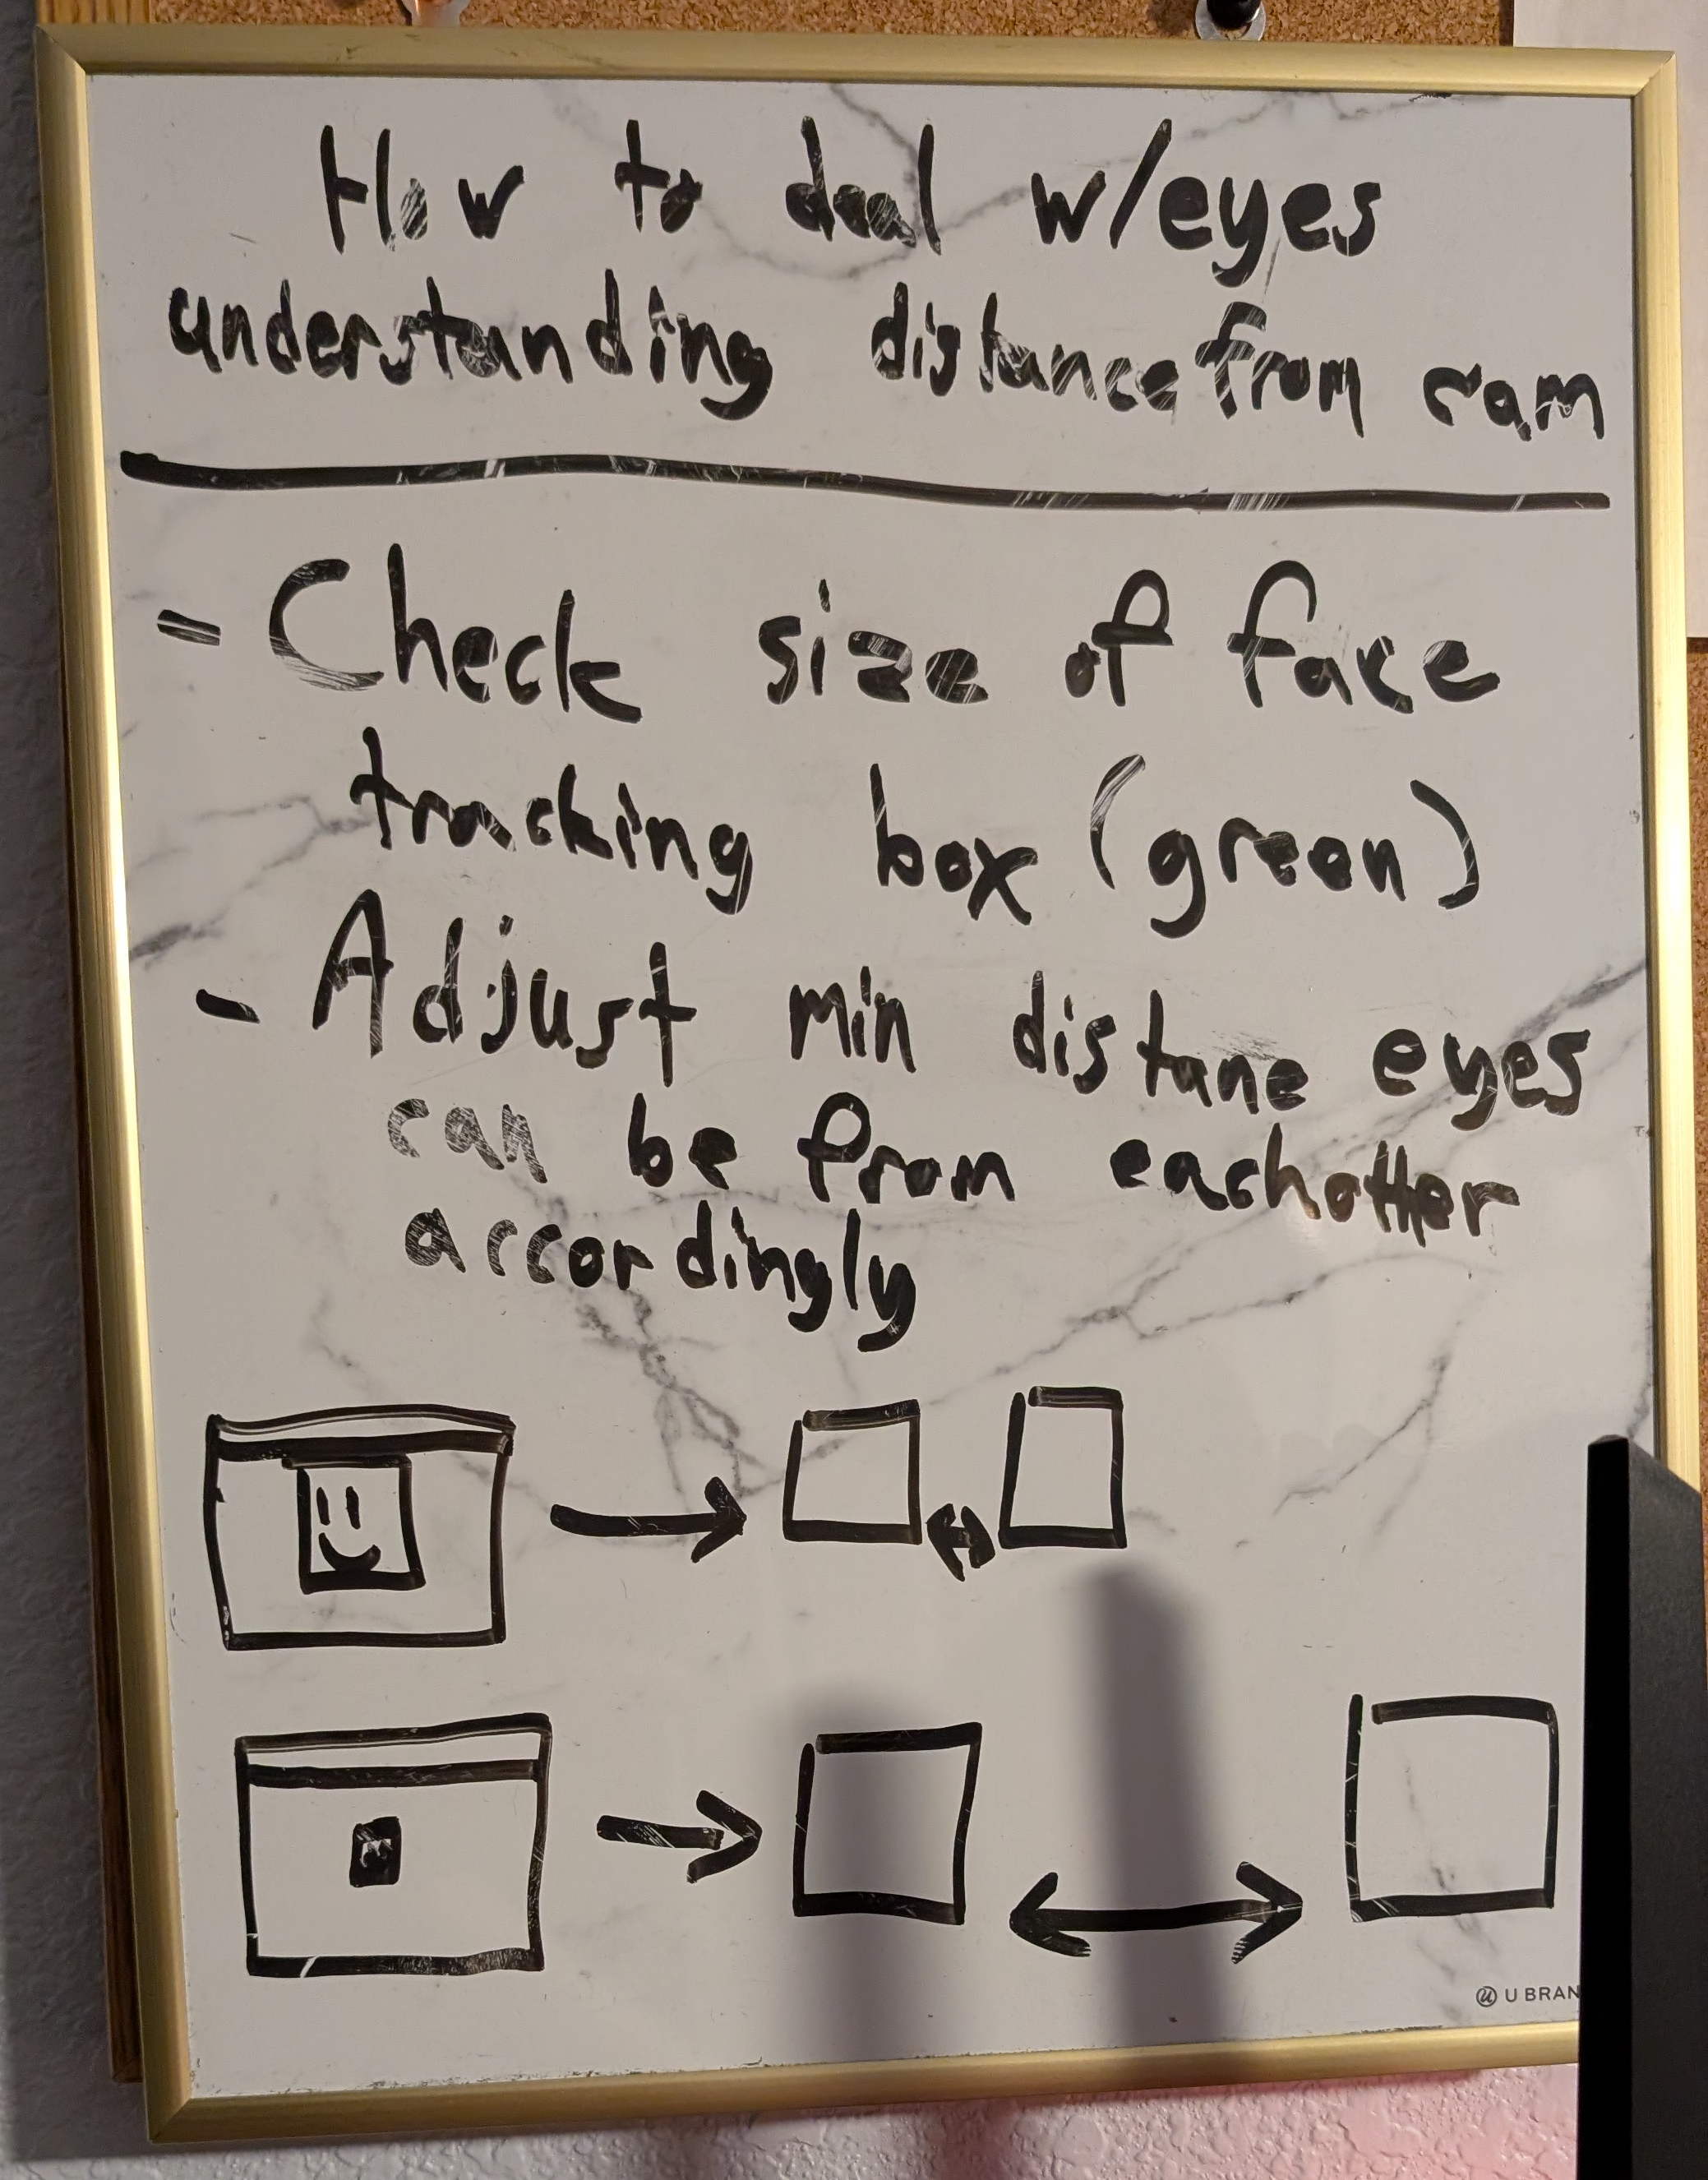 How to deal w/eyes
understanding distance from cam
- Check size of face
tracking box (green)
- Adjust min distane eyes
can be from eachother
accordingly
U BRAN